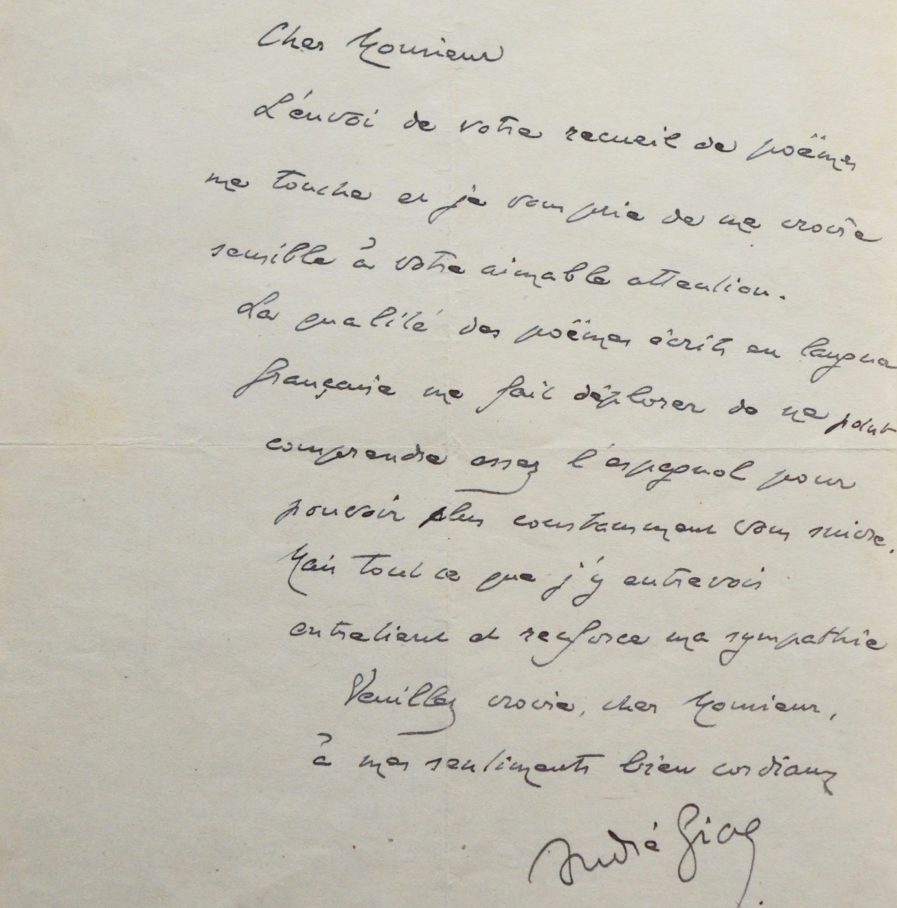 Cher Monsieur
L'envoi de votre recueil de poëmes
me touche et je vous prie de me croire
sensible à votre aimable attention.
La qualité des poëmes écrits en langue
française me fait déplorer de ne point
comprendre assez l'espagnol pour
pouvoir plus constamment vous suivre.
Mais tout ce que j'y entrevois
entretient et renforce ma sympathie
Veuillez croire, cher Monsieur,
à mes sentiments bien cordiaux
André Gide